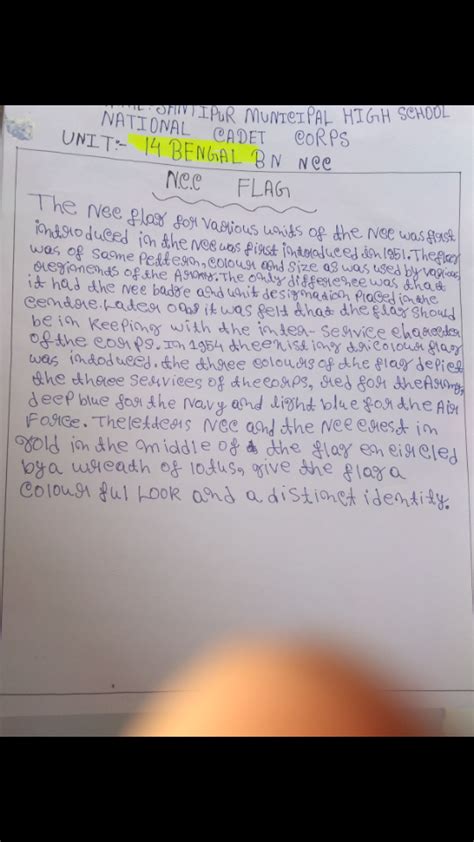 SANTIPUR MUNICIPAL HIGH SCHOOL
NATIONAL CADET CORPS
UNIT:- 14 BENGAL BN NCC
N.C.C FLAG
The NCC flag for various units of the NCC was first
introduced in the NCC was first introduced in 1951. The flag
was of same pettern, colour and size as was used by various
regiments of the Army. The only difference was that
it had the NCC badge and unit designation placed in the
centre. Later on it was felt that the flag should
be in keeping with the inter-service charecter
of the corps. In 1954 the existing tricolour flag
was intoduced. the three colours of the flag depict
the three services of the corps, red for the Army,
deep blue for the Navy and light blue for the Air
Force. The letters NCC and the NCC crest in
gold in the middle of the flag encircled
by a wreath of lotus, give the flag a
colourful Look and a distinct identity.